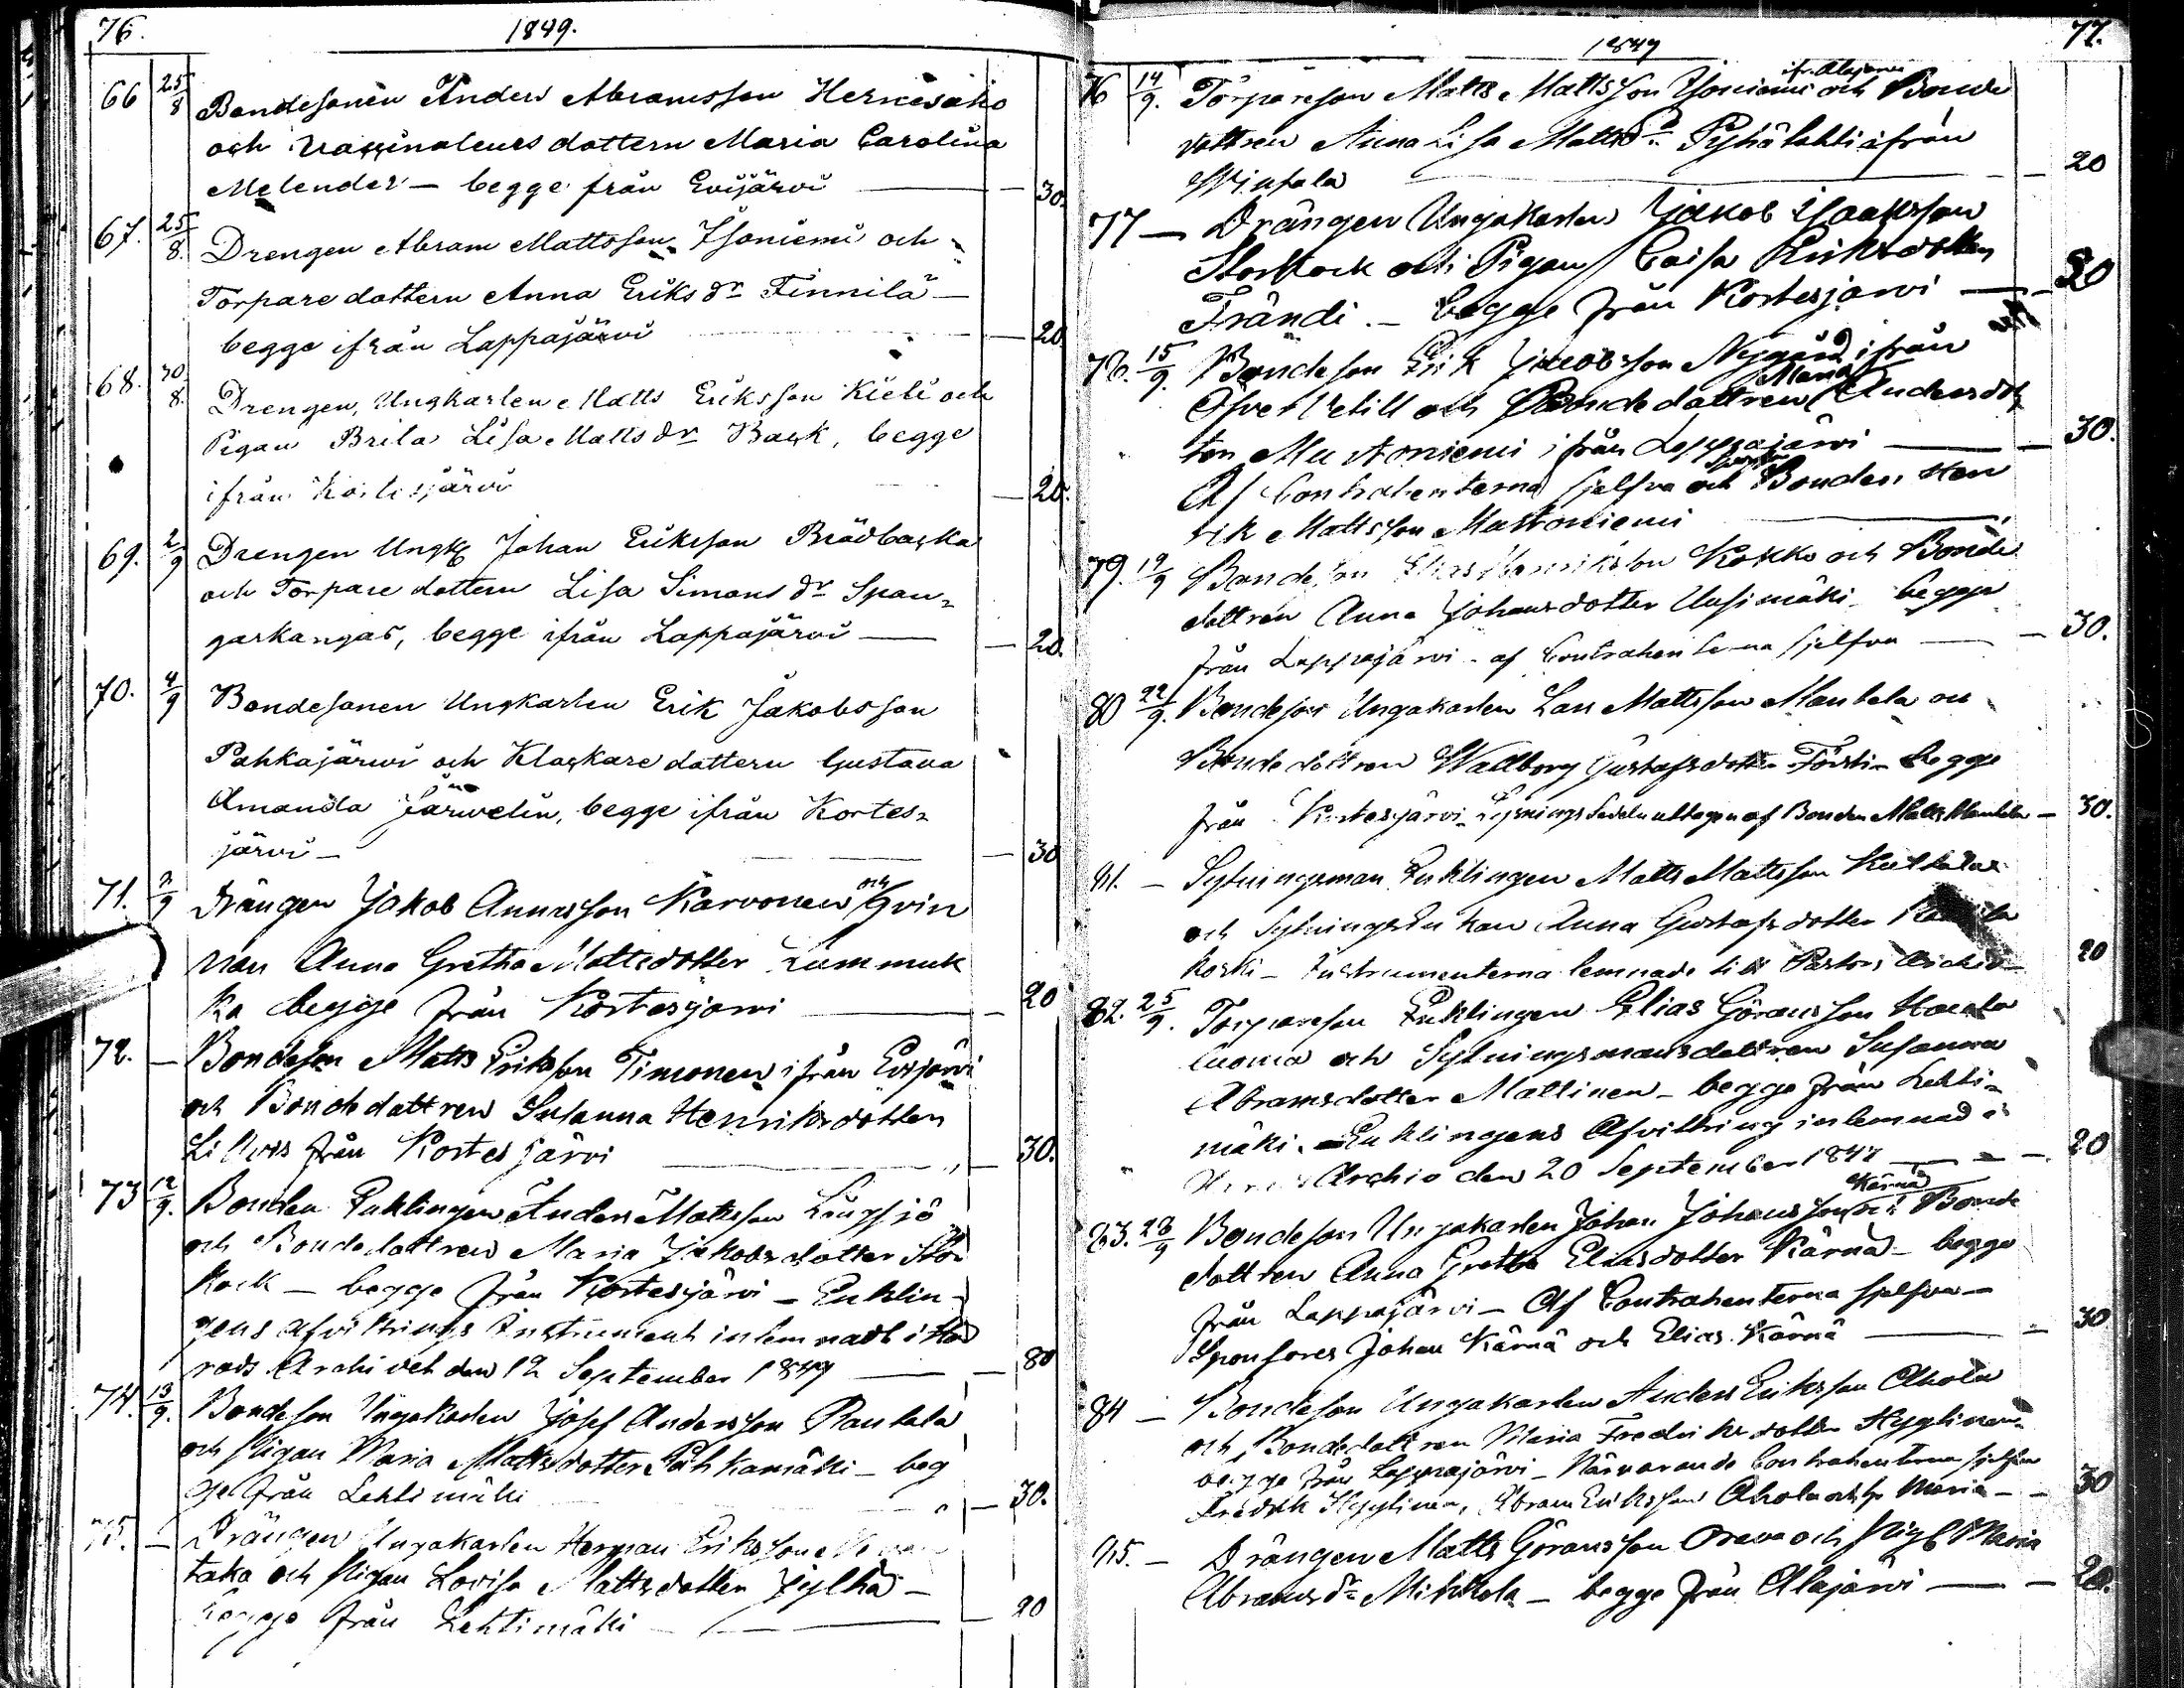 76.
1849.
66 25/8 Bondesonen Anders Abramsson Hernesaho
och Vaccinateurs dottern Maria Carolina
Melender — begge från Evijärvi — 30.
67. 25/8. Drengen Abram Mattsson Isoniemi och
Torpare dottern Anna Eriks dr Finnilä —
begge ifrån Lappajärvi — 20.
68. 30/8. Drengen, Ungkarlen Matts Eriksson Kieli och
Pigan Brita Lisa Matts dr Back, begge
ifrån Kortesjärvi — 20.
69. 2/9 Drengen Ungk Johan Eriksson Brädbacka
och Torpare dottern Lisa Simons dr Span=
garkangas, begge ifrån Lappajärvi — 20.
70. 4/9 Bondesonen Ungkarlen Erik Jakobsson
Pahkajärwi och Klockare dottern Gustava
Amanda Järwelin, begge ifrån Kortes=
järvi — 30
71. 7/9 Drängen Jakob Annasson Karvonen och Qvin
nan Anna Gretha Mattsdotter Lummuk
ka begge från Kortesjärvi — 20
72. — Bondeson Matts Eriksson Timonen ifrån Evijärvi
och Bondedottren Susanna Henriksdotter
från Kortesjärvi — 30.
73 12/9. Bonden Enklingen Anders Mattsson Långsjö
och Bondedottren Maria Jakobsdotter Stor
kock — begge från Kortesjärvi — Enklin=
gens afvittrings Instrument inlemnadt i Hä
rads Archivet den 12 September 1849 — 30
74. 13/9. Bondeson Ungakarlen Josef Andersson Rantala
och Pigan Maria Mattsdotter Pahkamäki — beg
ge från Lehtimäki — 30.
75. — Drängen Ungakarlen Herman Eriksson
taka och Pigan Lovisa Mattsdotter Jylhä —
begge från Lehtimäki — 20
1849
77.
76 14/9. Torpareson Matts Mattsson Isoniemi ifr. Alajärvi och Bonde
dottren Anna Lisa Mattsdr Pyhälahti ifrån
Wintala — 20
77 — Drängen Ungakarlen Jakob Isaaksson
Storkock och Pigan Caisa Eriksdotter
Frändi. — begge från Kortesjärvi — 20
78. 15/9. Bondeson Erik Jacobsson Nygård ifrån
Öfver Vetill och Bondedottren Maria Andersdot
ter Mustoniemi ifrån Lappajärvi — 30.
Af Contrahenterna sjelfva och Bonden Hen
rik Mattsson Mustoniemi
79. 19/9 Bondeson Elias Henriksson Kokko och Bonde
dottren Anna Johansdotter Uusimäki begge
från Lappajärvi — af Contrahenterna sjelfva — 30.
80 22/9. Bondeson Ungakarlen Lars Mattsson Mantela och
Bondedottren Wallborg Gustafsdotter Försti — begge
från Kortesjärvi — Lysningssedeln uttagen af Bonden Matts Mantela — 30.
81. — Sytningsman Enklingen Matts Mattsson Kultalax
och Sytnings Enkan Anna Gustafsdotter
koski — Instrumenterna lemnade till Pastors Archiv — 20
82. 25/9. Torpareson Enklingen Elias Göransson Hauta
luoma och Sytningsmansdottren Susanna
Abramsdotter Mallinen — begge från Lehti=
mäki. — Enklingens Afvittring inlemnad i
Archiv den 20 September 1849 — 20
83. 28/9 Bondeson Ungakarlen Johan Johansson Kärnä och Bonde
dottren Anna Greta Eliasdotter Kärnä — begge
från Lappajärvi — Af Contrahenterna sjelfva —
Sponsores Johan Kärnä och Elias Kärnä — 30
84 — Bondeson Ungakarlen Anders Eriksson Ahola
och Bondedottren Maria Fredriksdotter Hyytinen
begge från Lappajärvi — Närvarande Contrahenterna sjelfva
Fredrik Hyytinen, Abram Eriksson Ahola och Maria — 30
85. — Drängen Matts Göransson Orava och Pig. Maria
Abrams dr Mikkola — begge från Alajärvi — 20.